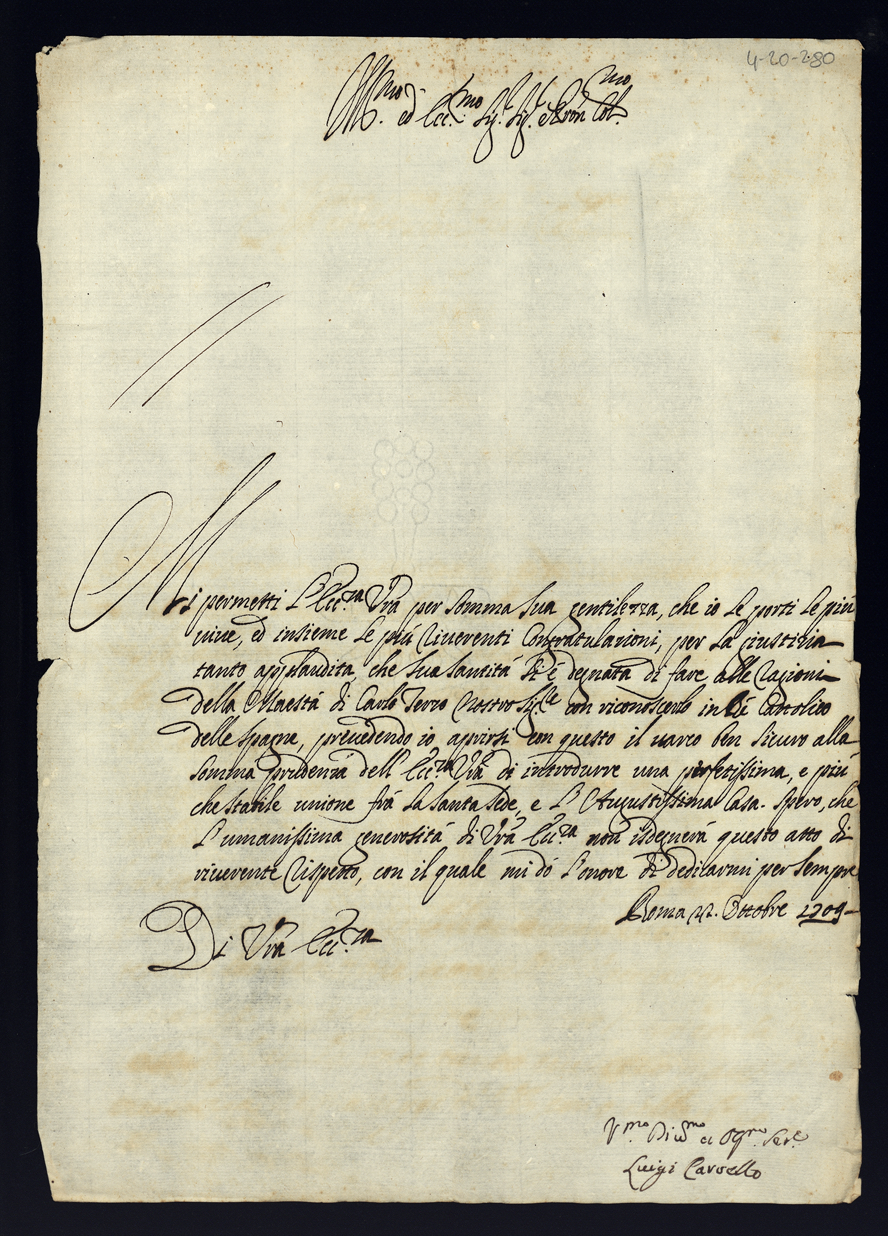 4-20-280
Ill.mo ed Ecc.mo Sig.r Sig.r e Pron Col.mo
Mi permetti l'Ecc.za Vrã per somma sua gentilezza, che io le porti le più
vive, ed insieme le più riverenti Congratulazioni, per la giustizia
tanto applaudita, che Sua Santità si è degnata di fare alle ragioni
della Maestà di Carlo Terzo nostro Sig.re con riconoscerlo in Rè Cattolico
delle Spagne, prevedendo io aprirsi con questo il varco ben sicuro alla
somma prudenza dell'Ecc.za Vrã di introdurre una perfetissima, e più
che stabile unione frà la Santa Sede, e l'Augustissima Casa. Spero, che
l'umanissima generosità di Vrã Ecc.za non isdegnerà questo atto di
riverente rispetto, con il quale mi dò l'onore di dedicarmi per sempre
Roma 22. Ottobre 1709
Di Vrã Ecc.za
V.mo Div.mo ed Obg.mo Ser.e
Luigi